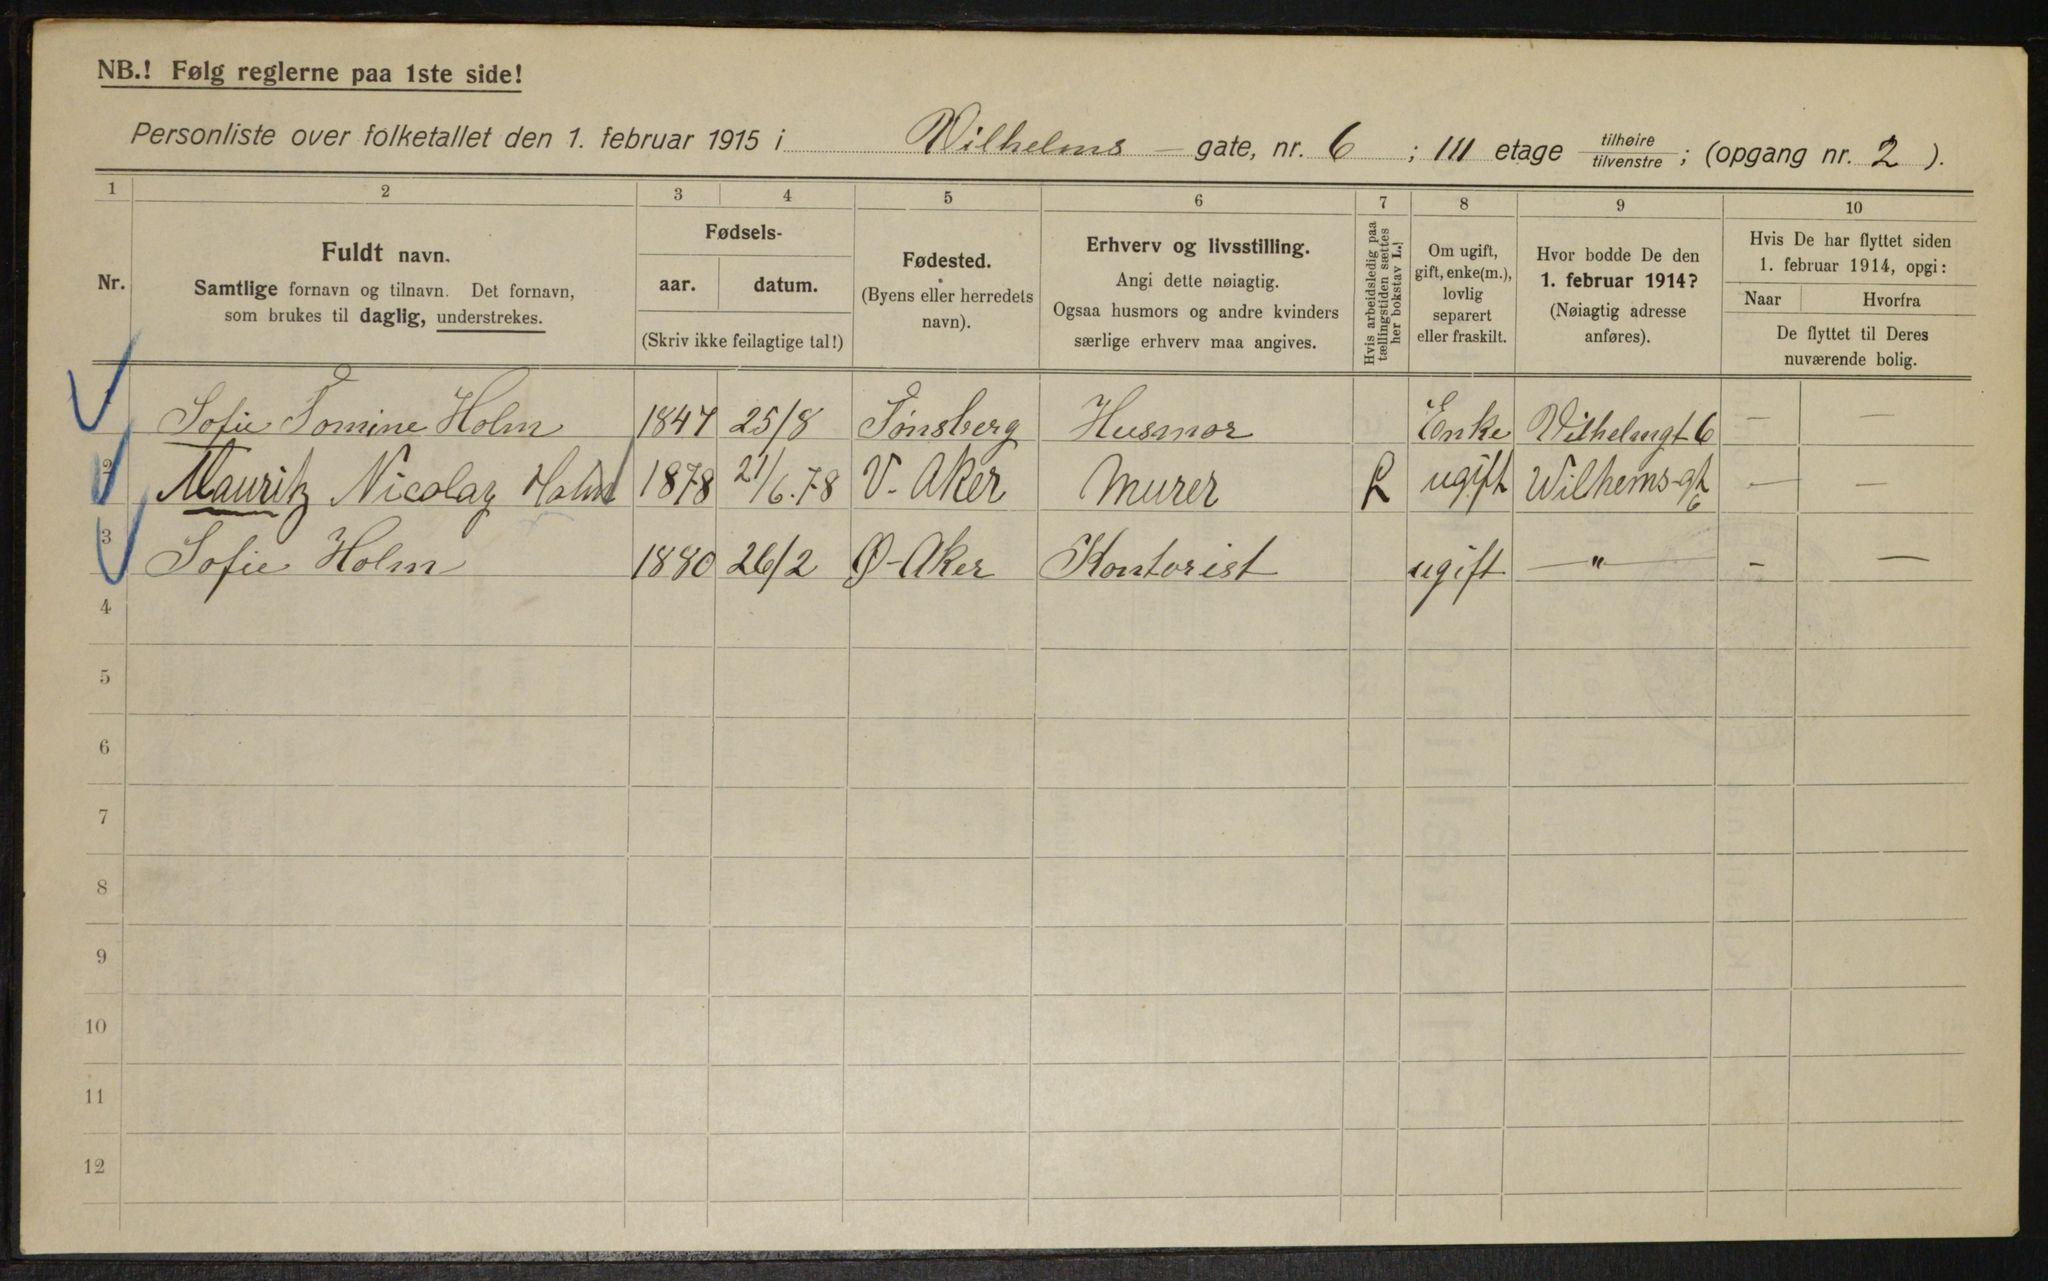 NB.! Følg reglerne paa 1ste side!
Personliste over folketallet den 1. februar 1915 i Wilhelms - gate, nr. 6 ; III etage tilhøire / tilvenstre ; (opgang nr. 2 ).
1 2 3 4 5 6 7 8 9 10
Nr.
Fuldt navn.
Samtlige fornavn og tilnavn. Det fornavn,
som brukes til daglig, understrekes.
Fødsels-
aar. datum.
(Skriv ikke feilagtige tal!)
Fødested.
(Byens eller herredets
navn).
Erhverv og livsstilling.
Angi dette nøiagtig.
Ogsaa husmors og andre kvinders
særlige erhverv maa angives.
Hvis arbeidsledig paa
tællingstiden sættes
her bokstav L.!
Om ugift,
gift, enke(m.),
lovlig
separert
eller fraskilt.
Hvor bodde De den
1. februar 1914?
(Nøiagtig adresse
anføres).
Hvis De har flyttet siden
1. februar 1914, opgi:
Naar Hvorfra
De flyttet til Deres
nuværende bolig.
Sofie Tomine Holm 1847 25/8 Tønsberg Husmor Enke Wilhelmsgt 6 — —
2 Mauritz Nicolay Holm 1878 21/6.78 V. Aker Murer L ugift Wilhems-gt 6 — —
3 Sofie Holm 1880 26/2 Ø-Aker Kontorist ugift — " — - —
4
5
6
7
8
9
10
11
12